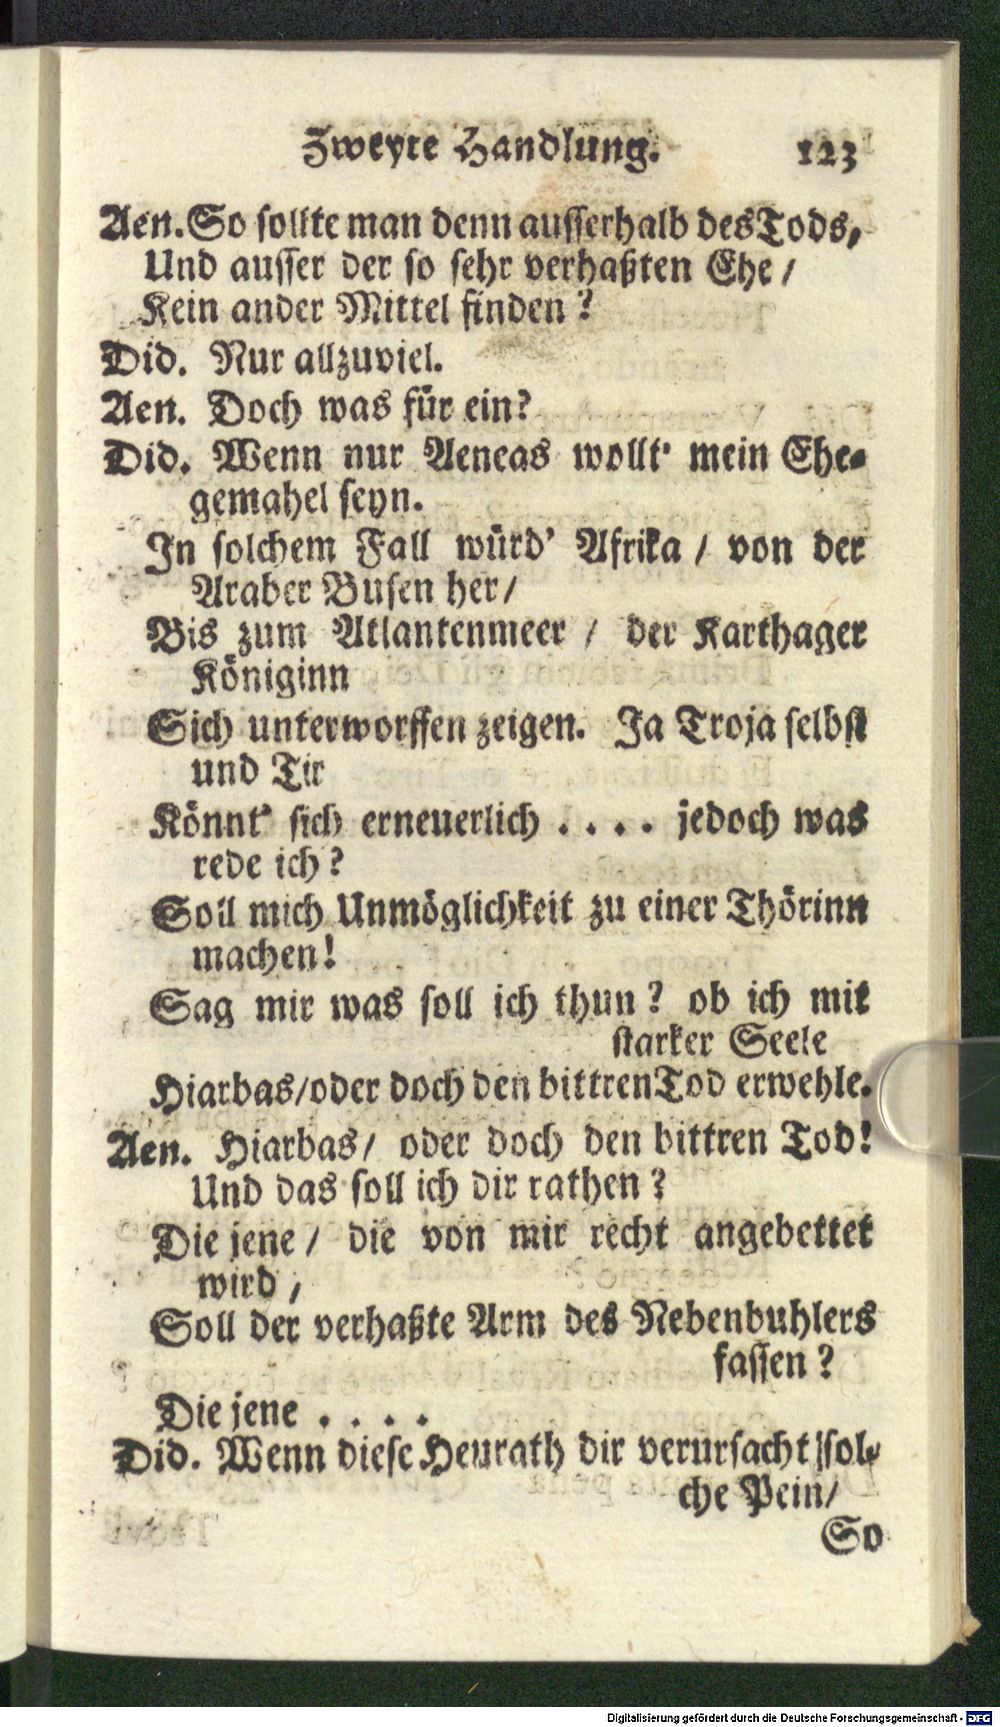 Zweyte Handlung. 123
Aen. So sollte man denn ausserhalb des Tods,
Und ausser der so sehr verhaßten Ehe /
Kein ander Mittel finden?
Did. Nur allzuviel.
Aen. Doch was für ein?
Did. Wenn nur Aeneas wollt' mein Ehe-
gemahel seyn.
In solchem Fall würd' Afrika / von der
Araber Busen her /
Bis zum Atlantenmeer / der Karthager
Königinn
Sich unterworffen zeigen. Ja Troja selbst
und Tir
Könnt' sich erneuerlich . . . . jedoch was
rede ich?
Soll mich Unmöglichkeit zu einer Thörinn
machen!
Sag mir was soll ich thun? ob ich mit
starker Seele
Hiarbas / oder doch den bittren Tod erwehle.
Aen. Hiarbas / oder doch den bittren Tod!
Und das soll ich dir rathen?
Die jene / die von mir recht angebettet
wird,
Soll der verhaßte Arm des Nebenbuhlers
fassen?
Die jene . . . .
Did. Wenn diese Heurath dir verursacht sol-
che Pein /
So
Digitalisierung gefördert durch die Deutsche Forschungsgemeinschaft - DFG